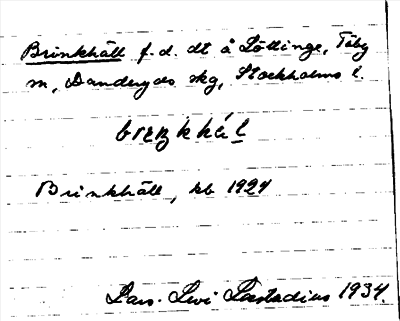 Brinkhäll f.d. dt å Löttinge, Täby
sn, Danderyds skg, Stockholms l.
Brinkhäll, kb 1924
Lars-Levi Læstadius 1934.